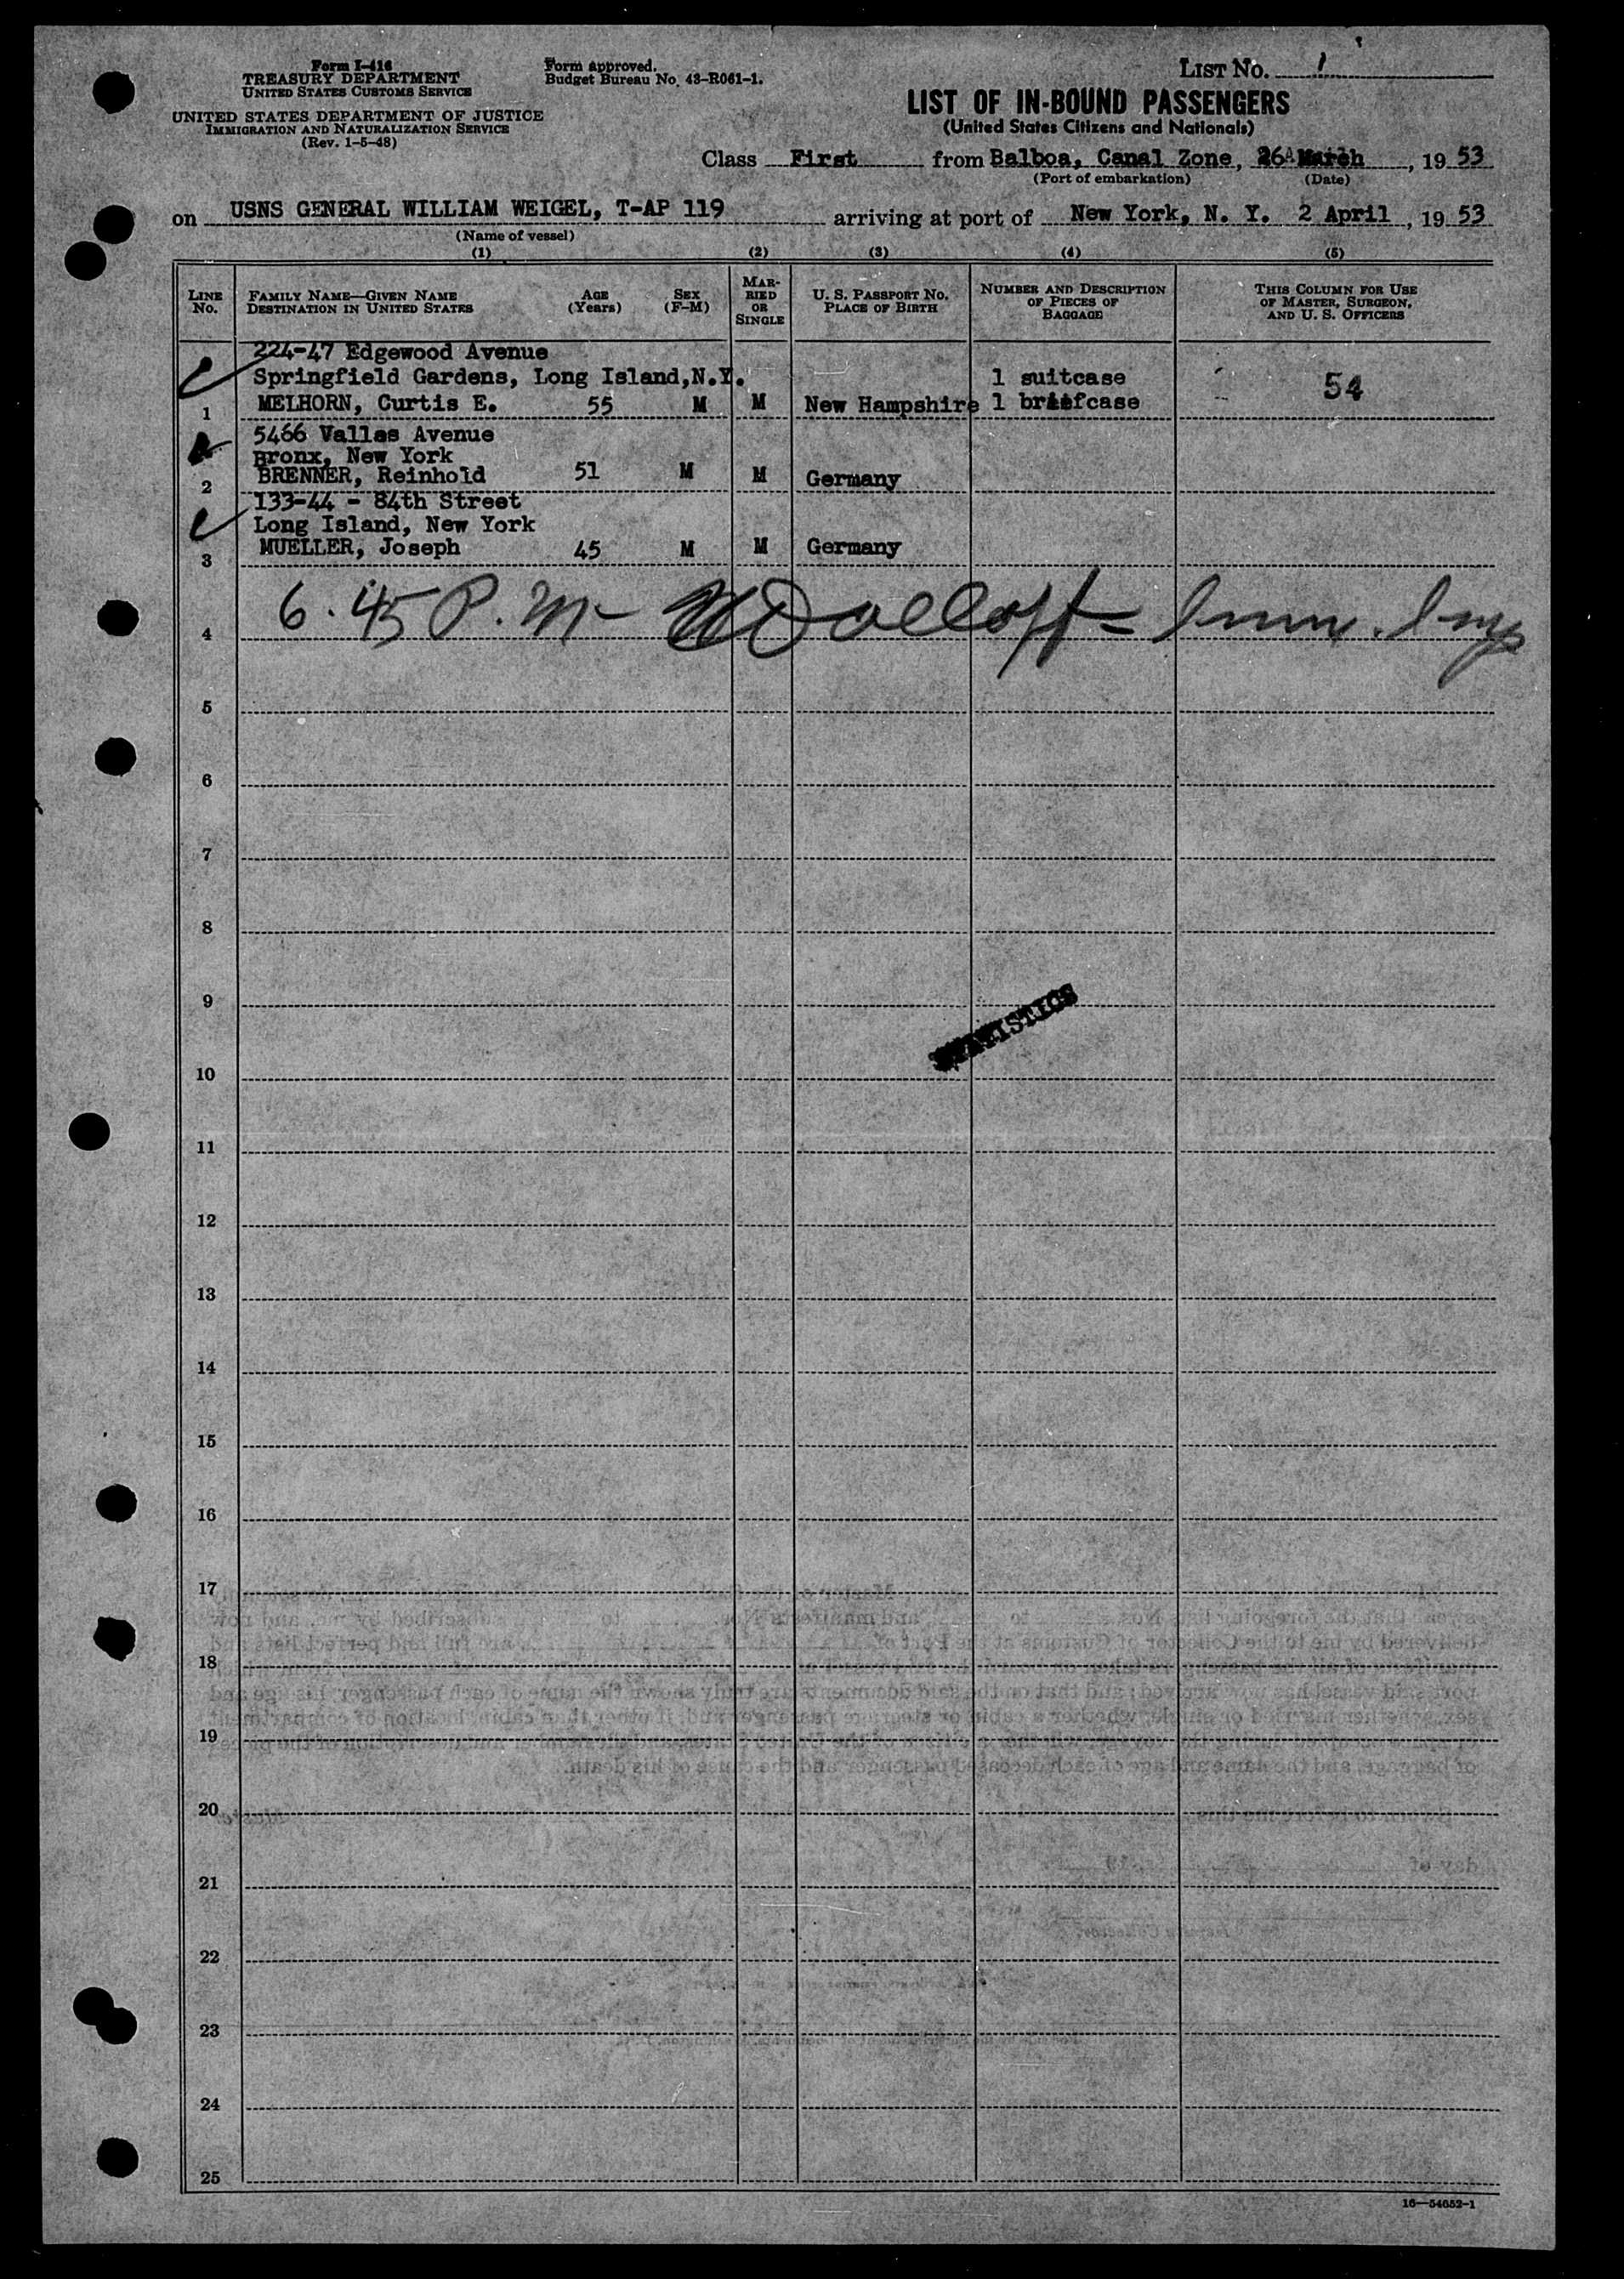 Form I-416
TREASURY DEPARTMENT
UNITED STATES CUSTOMS SERVICE
UNITED STATES DEPARTMENT OF JUSTICE
IMMIGRATION AND NATURALIZATION SERVICE
(Rev. 1-5-48)
Form approved.
Budget Bureau No. 43-R061-1.
LIST NO. 1
LIST OF IN-BOUND PASSENGERS
(United States Citizens and Nationals)
Class First from Balboa, Canal Zone, 26 March, 19 53
(Port of embarkation) (Date)
on USNS GENERAL WILLIAM WEIGEL, T-AP 119 arriving at port of New York, N. Y. 2 April, 19 53
(Name of vessel)
(1) (2) (3) (4) (5)
LINE NO.
FAMILY NAME—GIVEN NAME
DESTINATION IN UNITED STATES
AGE (Years)
SEX (F-M)
MARRIED OR SINGLE
U. S. PASSPORT NO.
PLACE OF BIRTH
NUMBER AND DESCRIPTION
OF PIECES OF
BAGGAGE
THIS COLUMN FOR USE
OF MASTER, SURGEON,
AND U. S. OFFICERS
224-47 Edgewood Avenue
Springfield Gardens, Long Island,N.Y. 1 suitcase 54
1 MELHORN, Curtis E. 55 M M New Hampshire 1 briefcase
5466 Vallas Avenue
Bronx, New York
2 BRENNER, Reinhold 51 M M Germany
133-44 - 84th Street
Long Island, New York
3 MUELLER, Joseph 45 M M Germany
4 6.45 P.M- Imm. Insp
5
6
7
8
9
STATISTICS
10
11
12
13
14
15
16
17
18
19
20
21
22
23
24
25
16—54652-1